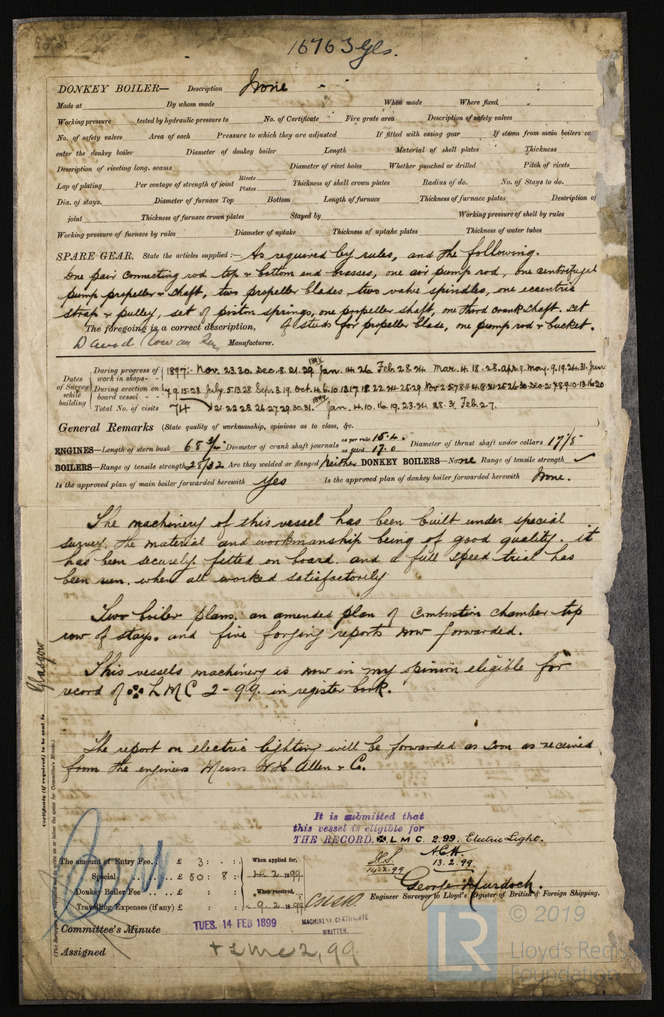 16763 Gls.
DONKEY BOILER— Description None
Made at By whom made When made Where fixed
Working pressure tested by hydraulic pressure to No. of Certificate Fire grate area Description of safety valves
No. of safety valves Area of each Pressure to which they are adjusted If fitted with easing gear If steam from main boilers can
enter the donkey boiler Diameter of donkey boiler Length Material of shell plates Thickness
Description of riveting long. seams Diameter of rivet holes Whether punched or drilled Pitch of rivets
Lap of plating Per centage of strength of joint Rivets Plates Thickness of shell crown plates Radius of do. No. of Stays to do.
Dia. of stays. Diameter of furnace Top Bottom Length of furnace Thickness of furnace plates Description of
joint Thickness of furnace crown plates Stayed by Working pressure of shell by rules
Working pressure of furnace by rules Diameter of uptake Thickness of uptake plates Thickness of water tubes
SPARE GEAR. State the articles supplied:— As required by rules, and the following.
One pair connecting rod top & bottom end brasses, one air pump rod, one centrifugal
pump propeller & shaft, two propeller blades two valve spindles, one eccentric
strap & pulley, set of piston springs, one propeller shaft, one third crank shaft, set
The foregoing is a correct description, of studs for propeller blade, one pump rod & bucket.
David Rowan Manufacturer.
Dates of Survey while building
During progress of work in shops— 1897: Nov. 23. 30 Dec. 8. 21. 29 1898 Jan. 14 26 Feb. 28 Mar. 4. 18. 28. Apr. 9. May. 9. 19. 24. 31. Jun
During erection on board vessel— 7. 9. 15. 23 July. 5. 13. 28 Sep. 3. 19. Oct.
Total No. of visits 74 21. 22. 28. 26. 27. 29. 30. 31. 1899 Jan. 4. 10. 16. 19. 23. 24 28. 31 Feb. 2. 7.
General Remarks (State quality of workmanship, opinions as to class, &c.
ENGINES—Length of stern bush 68¾" Diameter of crank shaft journals as per rule 15.4 as fitted 17.0 Diameter of thrust shaft under collars 17⅛
BOILERS—Range of tensile strength 28/32 Are they welded or flanged Neither DONKEY BOILERS—None Range of tensile strength
Is the approved plan of main boiler forwarded herewith Yes Is the approved plan of donkey boiler forwarded herewith None.
The machinery of this vessel has been built under special
survey. the material and workmanship being of good quality. it
has been securely fitted on board. and a full speed trial has
been run. when all worked satisfactorily
Two boiler plans, an amended plan of combustion chamber top
row of stays. and five forging reports now forwarded.
This vessels machinery is now in my opinion eligible for
record of ✠ LMC 2-99. in register book.
The report on electric lighting will be forwarded as soon as received
from the engineers Messrs W H Allen & Co.
Glasgow
Certificate (if required) to be sent to
It is submitted that
this vessel is eligible for
THE RECORD. ✠ L M C 2.99. Electric Light.
13.2.99.
14.2.99
The amount of Entry Fee . . £ 3 : : When applied for,
Special . . . . £ 50 : 8 : 2.1899
Donkey Boiler Fee . . . . £ : : When received,
Travelling Expenses (if any) £ : : 9.2.1899
George Murdoch.
Engineer Surveyor to Lloyd's Register of British & Foreign Shipping.
Committee's Minute TUES. 14 FEB 1899
MACHINERY CERTIFICATE
WRITTEN.
Assigned + LMC 2,99
© 2019
LR Lloyd's Register
Foundation